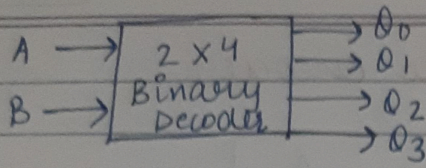 A
B
2 x 4
Binary
Decoder
Q0
Q1
Q2
Q3